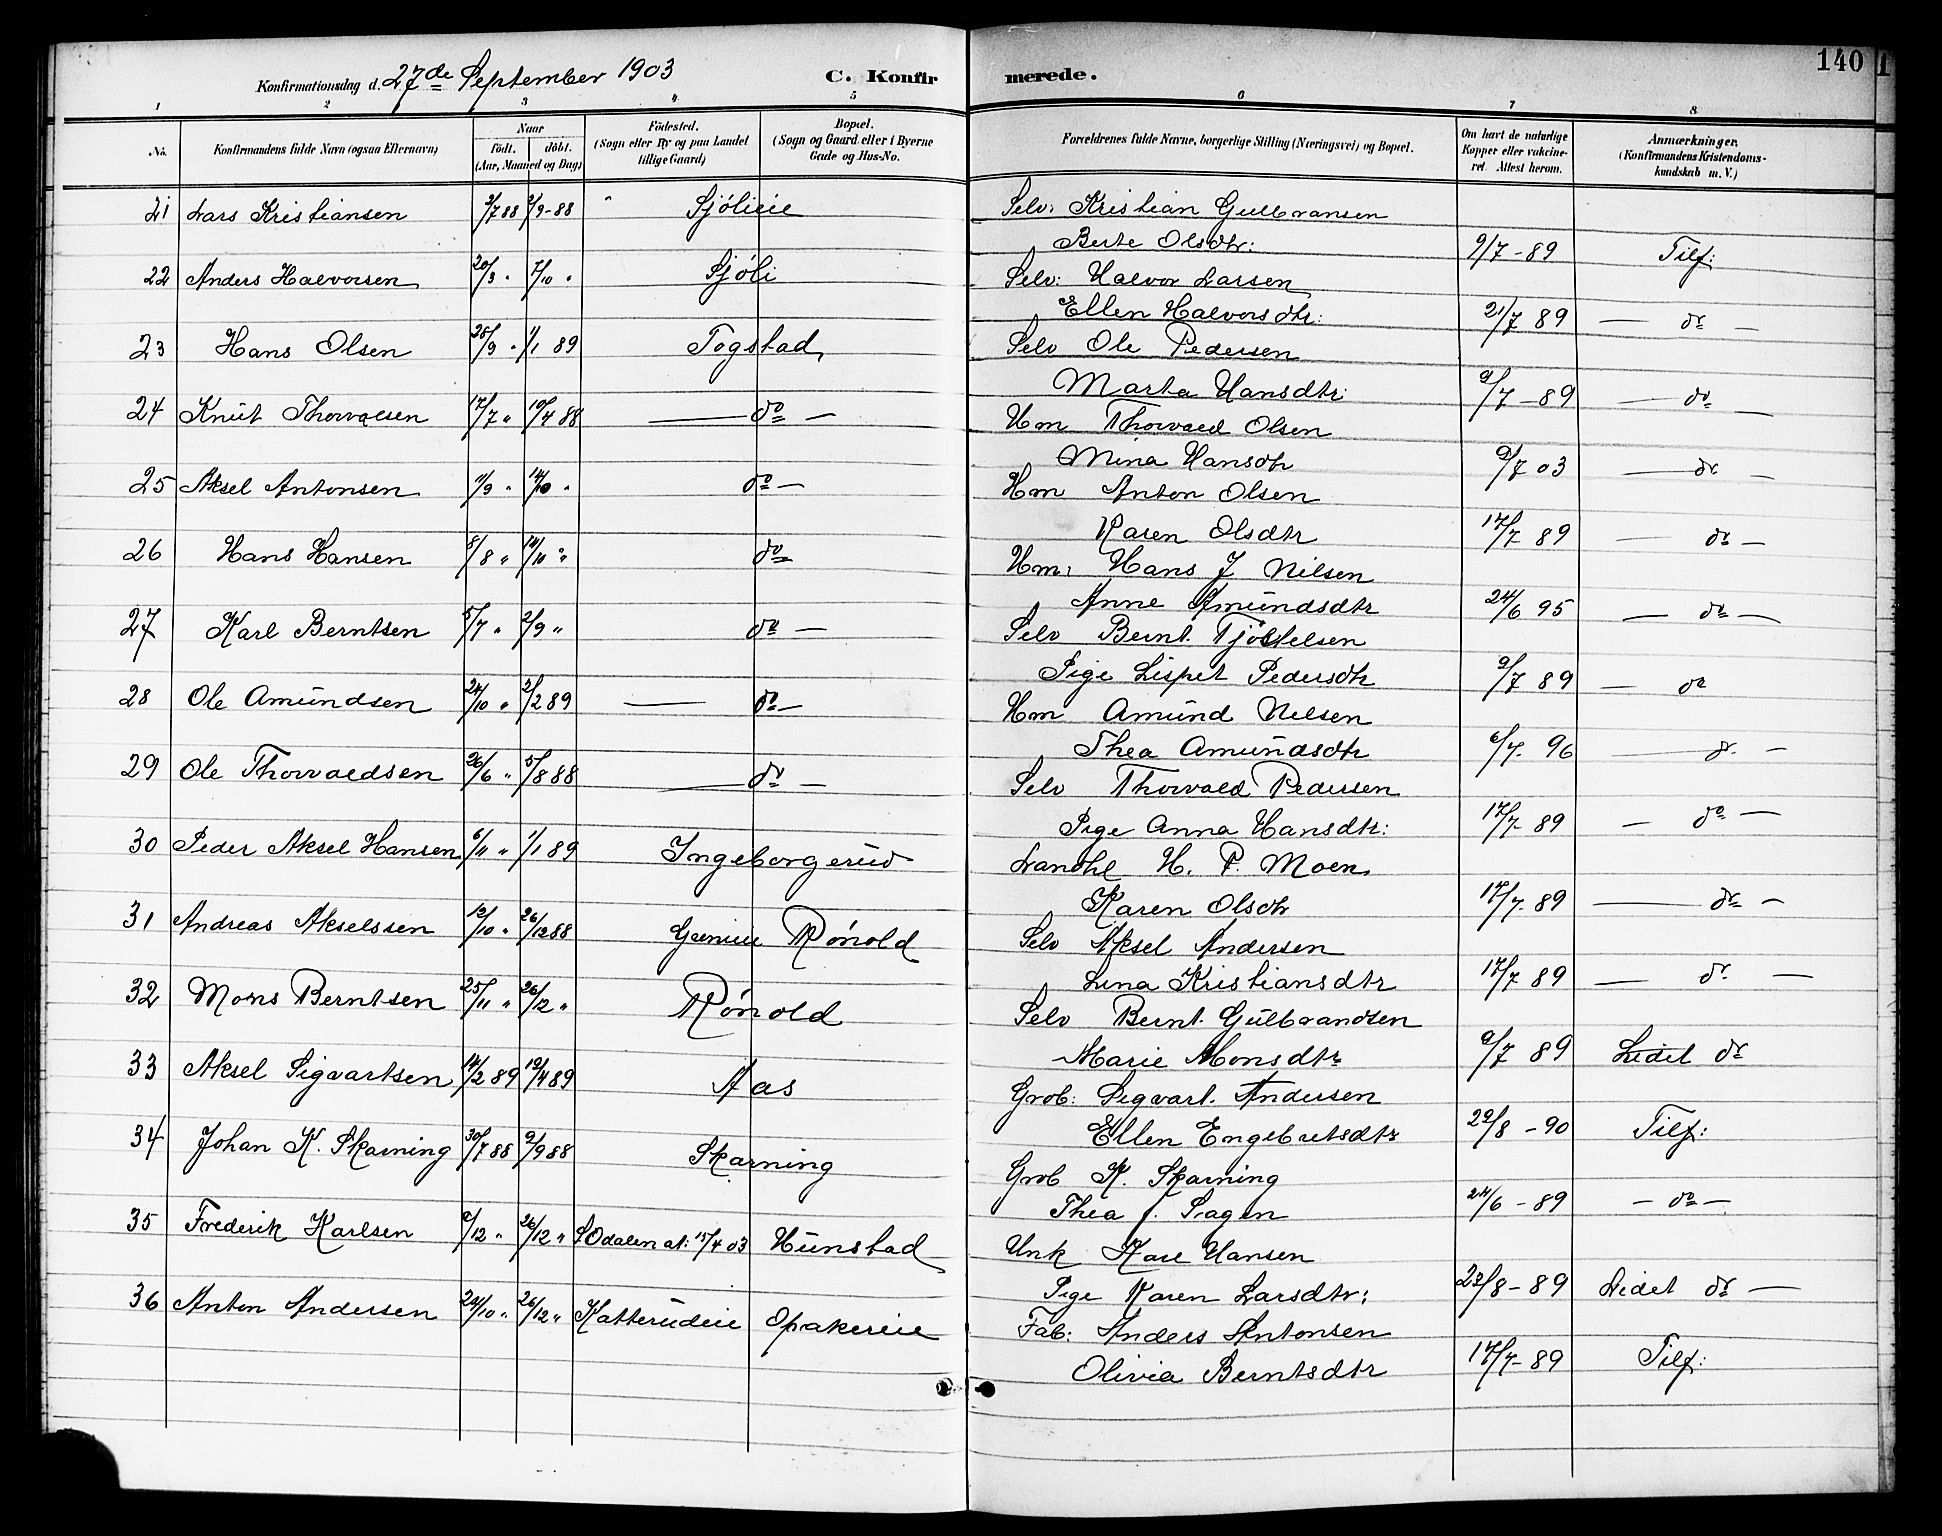 140
Konfirmationsdag d. 27de September 1903 C. Konfirmerede.
1 2 3 4 5 6 7 8
No. Konfirmandens fulde Navn (ogsaa Efternavn) Naar født. døbt. (Aar, Maaned og Dag) Födested. (Sogn eller By og paa Landet tillige Gaard) Bopæl. (Sogn og Gaard eller i Byerne Gade og Hus-No. Forældrenes fulde Navne, borgerlige Stilling (Næringsvei) og Bopæl. Om havt de naturlige Kopper eller vakcineret. Attest herom. Anmærkninger. (Konfirmandens Kristendomskundskab m. V.)
21 Lars Kristiansen 3/7 88 2/9-88 Sjölieie Selv: Kristian Gulbransen
Berte Olsdtr: 9/7-89 Tilf:
22 Anders Halvorsen 20/3 " 7/10 " Sjöli Selv: Halvor Larsen
Ellen Halvorsdtr: 21/7 89 — do —
23 Hans Olsen 28/9 " 1/1 89 Togstad Selv Ole Pedersen
Marta Hansdtr: 9/7-89 — do —
24 Knut Thorvalsen 17/7 " 10/4 88 — do — Hm Thorvald Olsen
Mina Hansdtr 9/7 03 — do —
25 Aksel Antonsen 11/9 " 14/10 " do — Hm Anton Olsen
Karen Olsdtr 17/7 89 — do —
26 Hans Hansen 8/8 " 14/10 " do Hm: Hans J Nilsen
Anne Amundsdtr 24/6 95 — do —
27 Karl Berntsen 5/7 " 2/9 " do — Selv Bernt Tjöstelsen
Pige Lispet Pedersdtr 9/7 89 — do
28 Ole Amundsen 24/10 " 2/2 89 — do — Hm Amund Nilsen
Thea Amundsdtr 6/7. 96 — do —
29 Ole Thorvaldsen 26/6 " 5/8 88 — do — Selv Thorvald Pedersen
Pige Anna Hansdtr: 17/7-89 — do —
30 Peder Aksel Hansen 6/11 " 1/1 89 Ingeborgerud Landhl H. P. Moen
Karen Olsdtr 17/7-89 — do —
31 Andreas Akselssen 12/10 " 26/12 88 Rönold Selv Aksel Andersen
Lina Kristiansdtr 17/7 89 — do —
32 Mons Berntsen 25/11 " 26/12 " Rönold Selv Bernt Gulbrandsen
Marie Monsdtr 9/7 89 Lidet do
33 Aksel Sigvartsen 14/2 89 19/4 89 Aas Grob: Sigvart Andersen
Ellen Engebretsdtr 29/8-90 Tilf:
34 Johan K. Skarning 30/7 88 9/9 88 Skarning Grob K. Skarning
Thea J. Sagen 24/6-89 — do —
35 Frederik Karlsen 6/12 " 26/12 " S Odalen at: 15/4 03 Hunstad Unk Karl Hansen
Pige Karen Larsdtr: 23/8-89 Lidet do —
36 Anton Andersen 24/10 " 26/12 " Katterudeie Opakereie Fab: Anders Antonsen
Olivia Berntsdtr 17/7-89 Tilf: